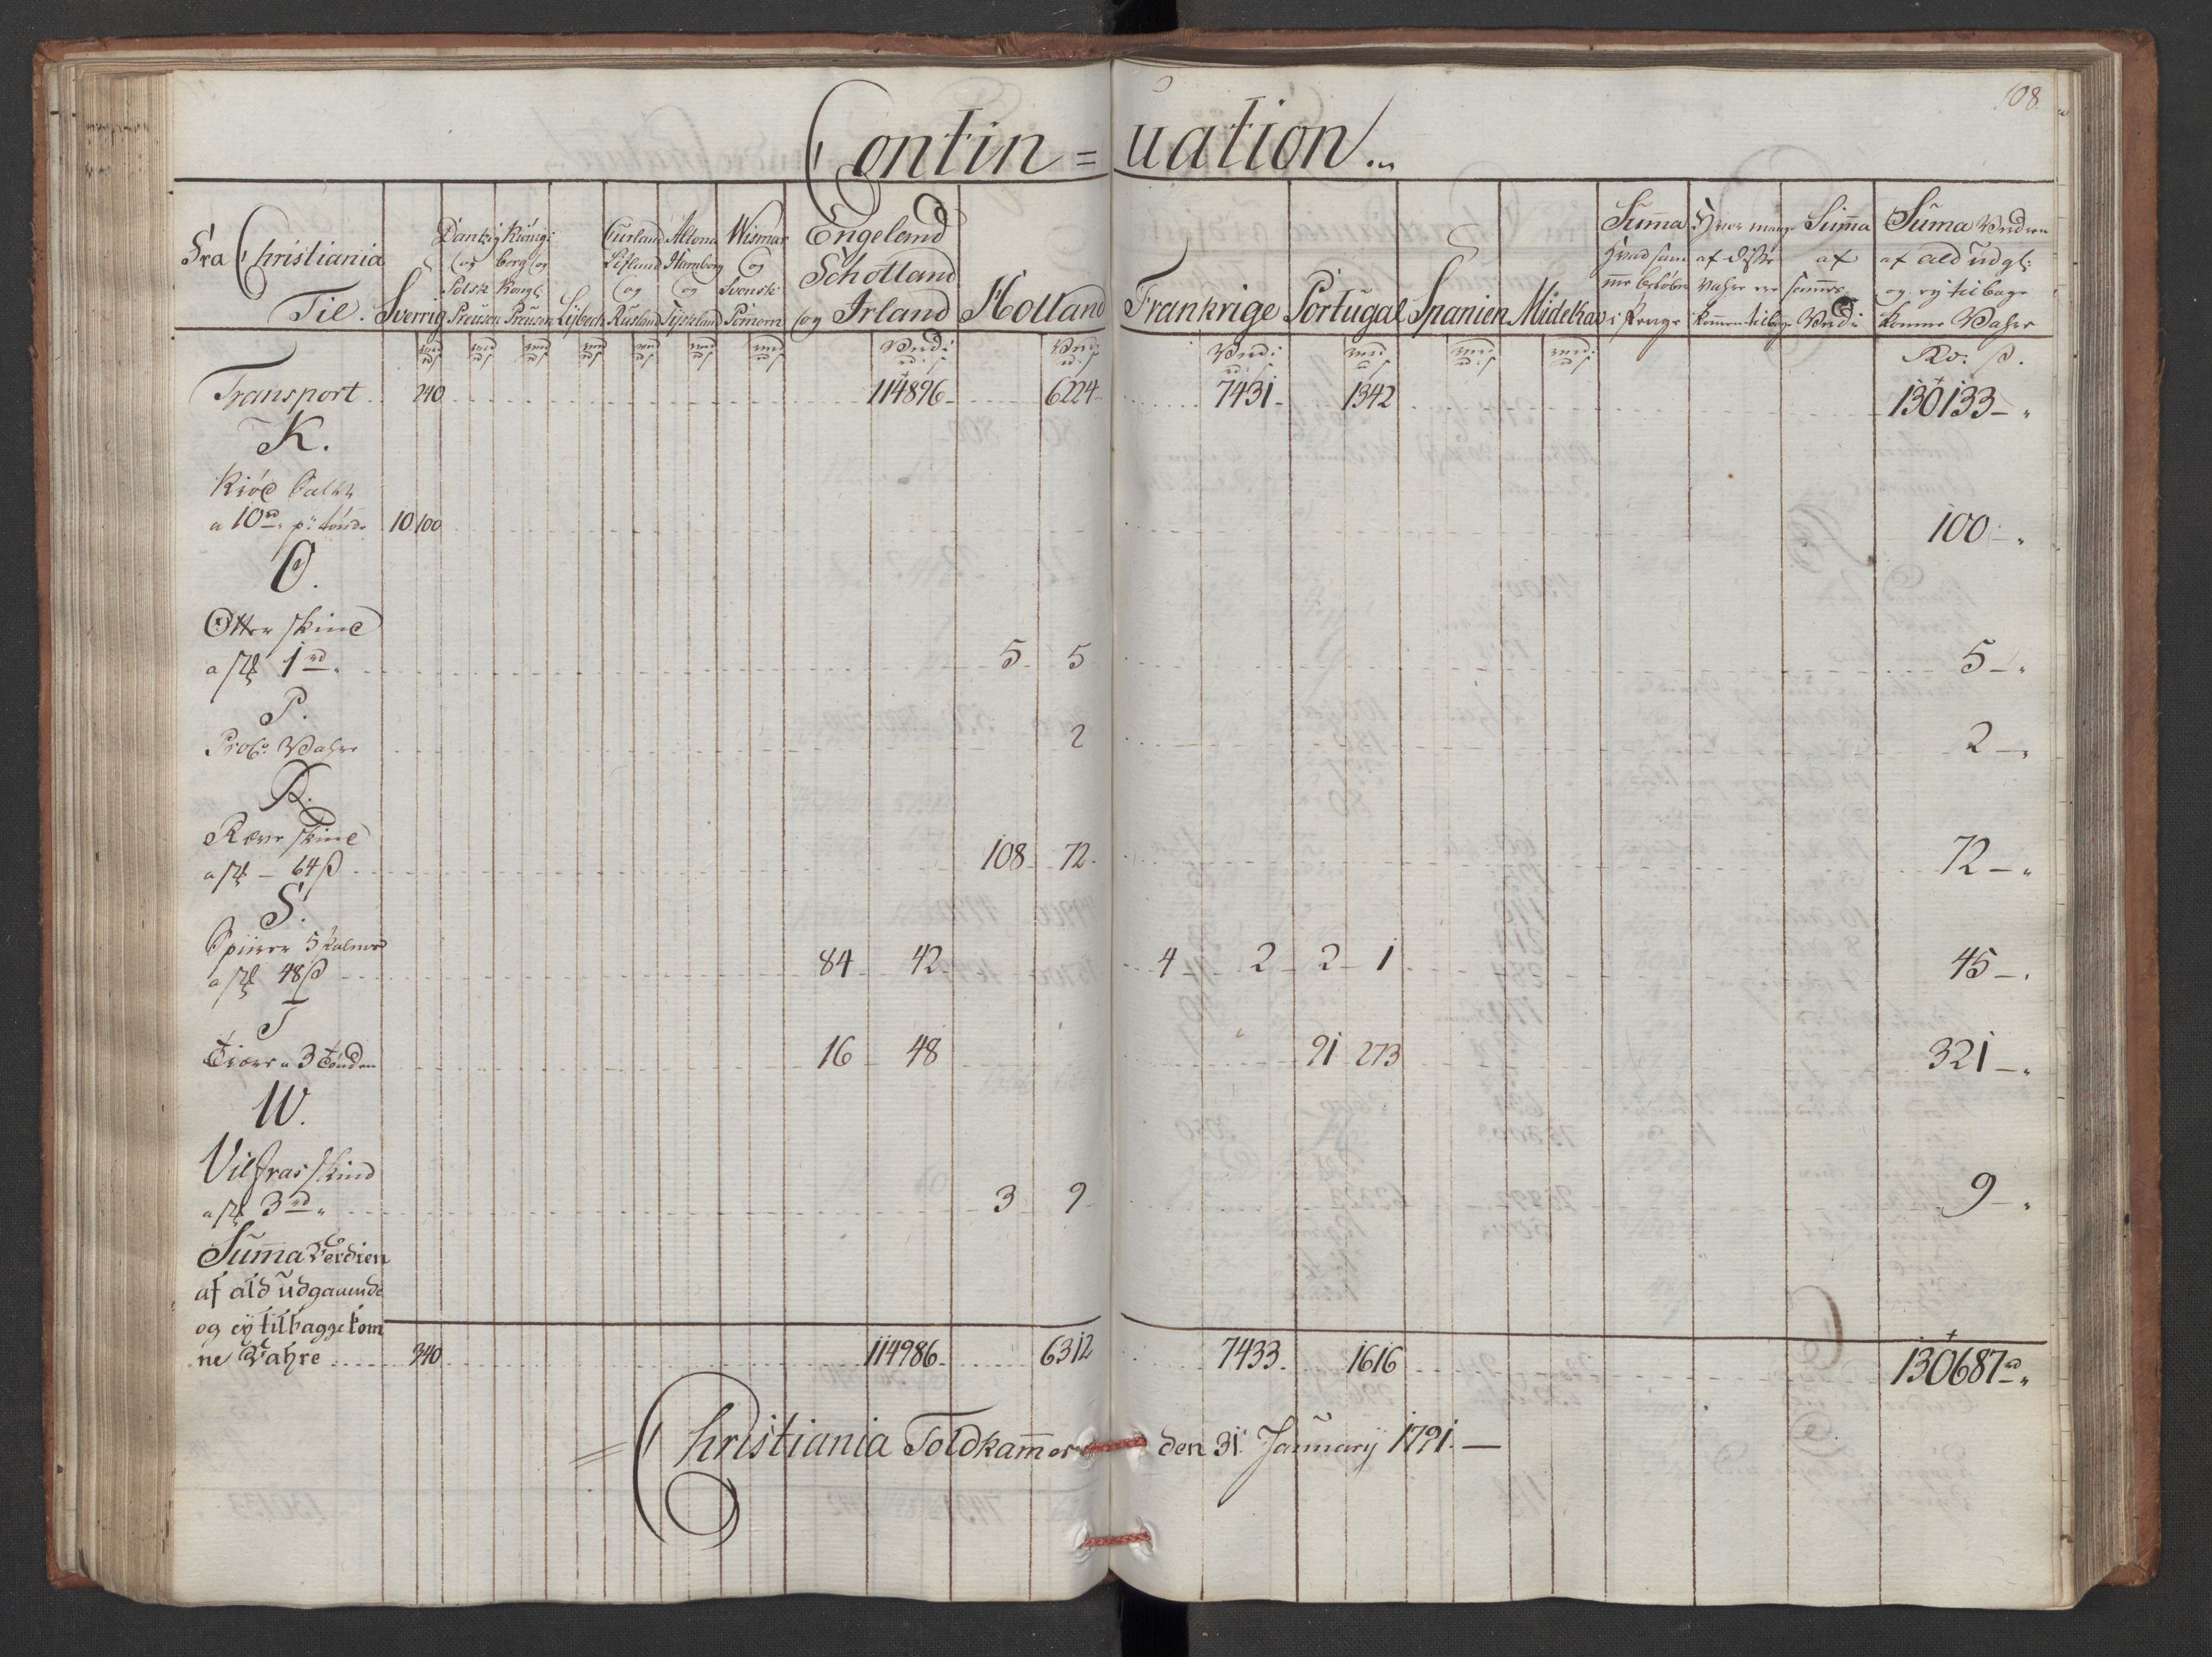 108.
Contin = uation.
Fra Christiania
Til.
Sverrig
Dantzig og Polsk Preusen
Kiönigsberg og Kongl: Preusen
Lybech
Curland Lifland og Rusland
Altona Hamborg og Tydskeland
Wismar og Svensk Pomern
Engeland Schotland og Irland
Holland
Frankrige
Portugal
Spanien
Midelhav
Summa
Hvor mange af disse Vahre ere kommen tilbage
Summa af sammes Verdi
Suma Verdien af ald udgl: og ey tilbage komne Vahre
Rd. ß.
Transport 240 114896 6224 7431 1342 130133 - "
K.
Kiød saltet
a 10 rd. pr: tönde 10 100 100 - "
O.
Otter skind
a stk 1 rd " 5 5 5 - "
P.
Prob: Vahre 2 2 - "
R.
Ræve skind
a stk - 64 ß 108 72 72 - "
S.
Spiirer 5 Palmer
a stk 48 ß 84 42 4 2 2 1 45 - "
T
Tiære a 3 tönden 16 48 91 273 321 - "
W.
Vilfras skind
a stk 3 rd " 3 9 9 - "
Summa Verdien
af ald udgaaende
og ey tilbagge kom
ne Vahre 340 114986 6312 7433 1616 130687 rd "
= Christiania Toldkammer den 31. January 1791. —